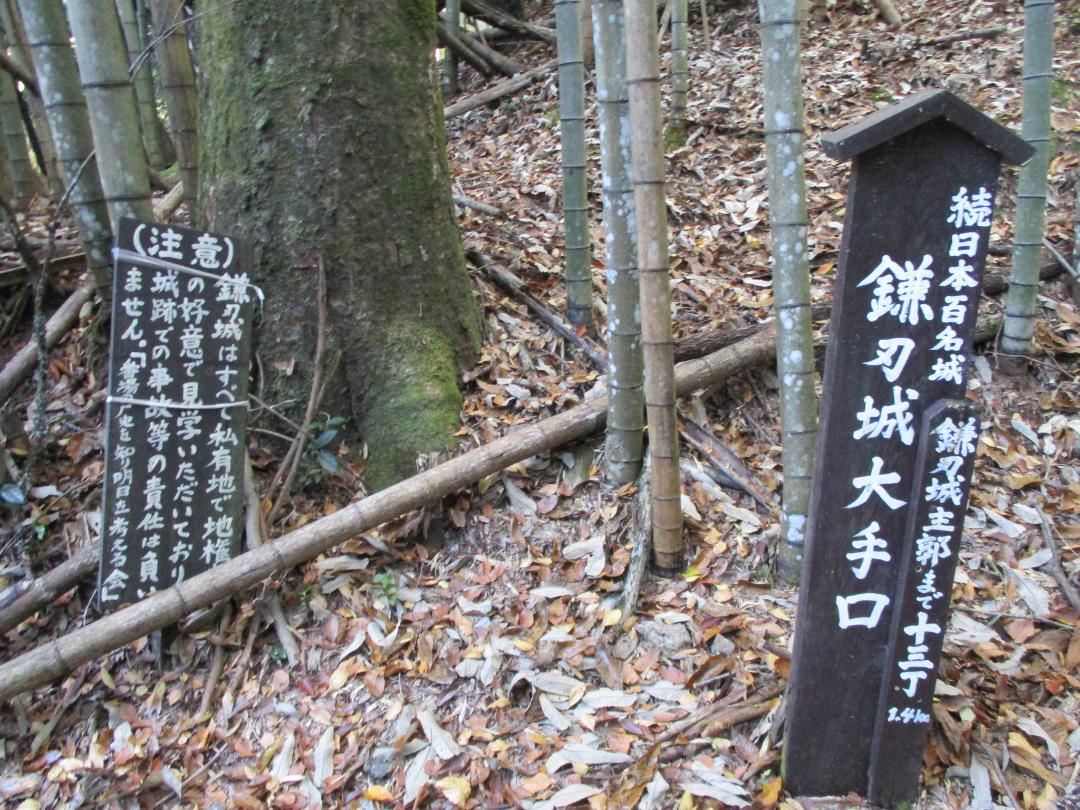 (注意)
鎌刃城はすべて私有地で地権
の好意で見学いただいており
城跡での事故等の責任は負い
ません。「番場の歴史を知り明日を考える会」
続日本百名城
鎌刃城大手口
鎌刃城主郭まで十三丁
1.4km